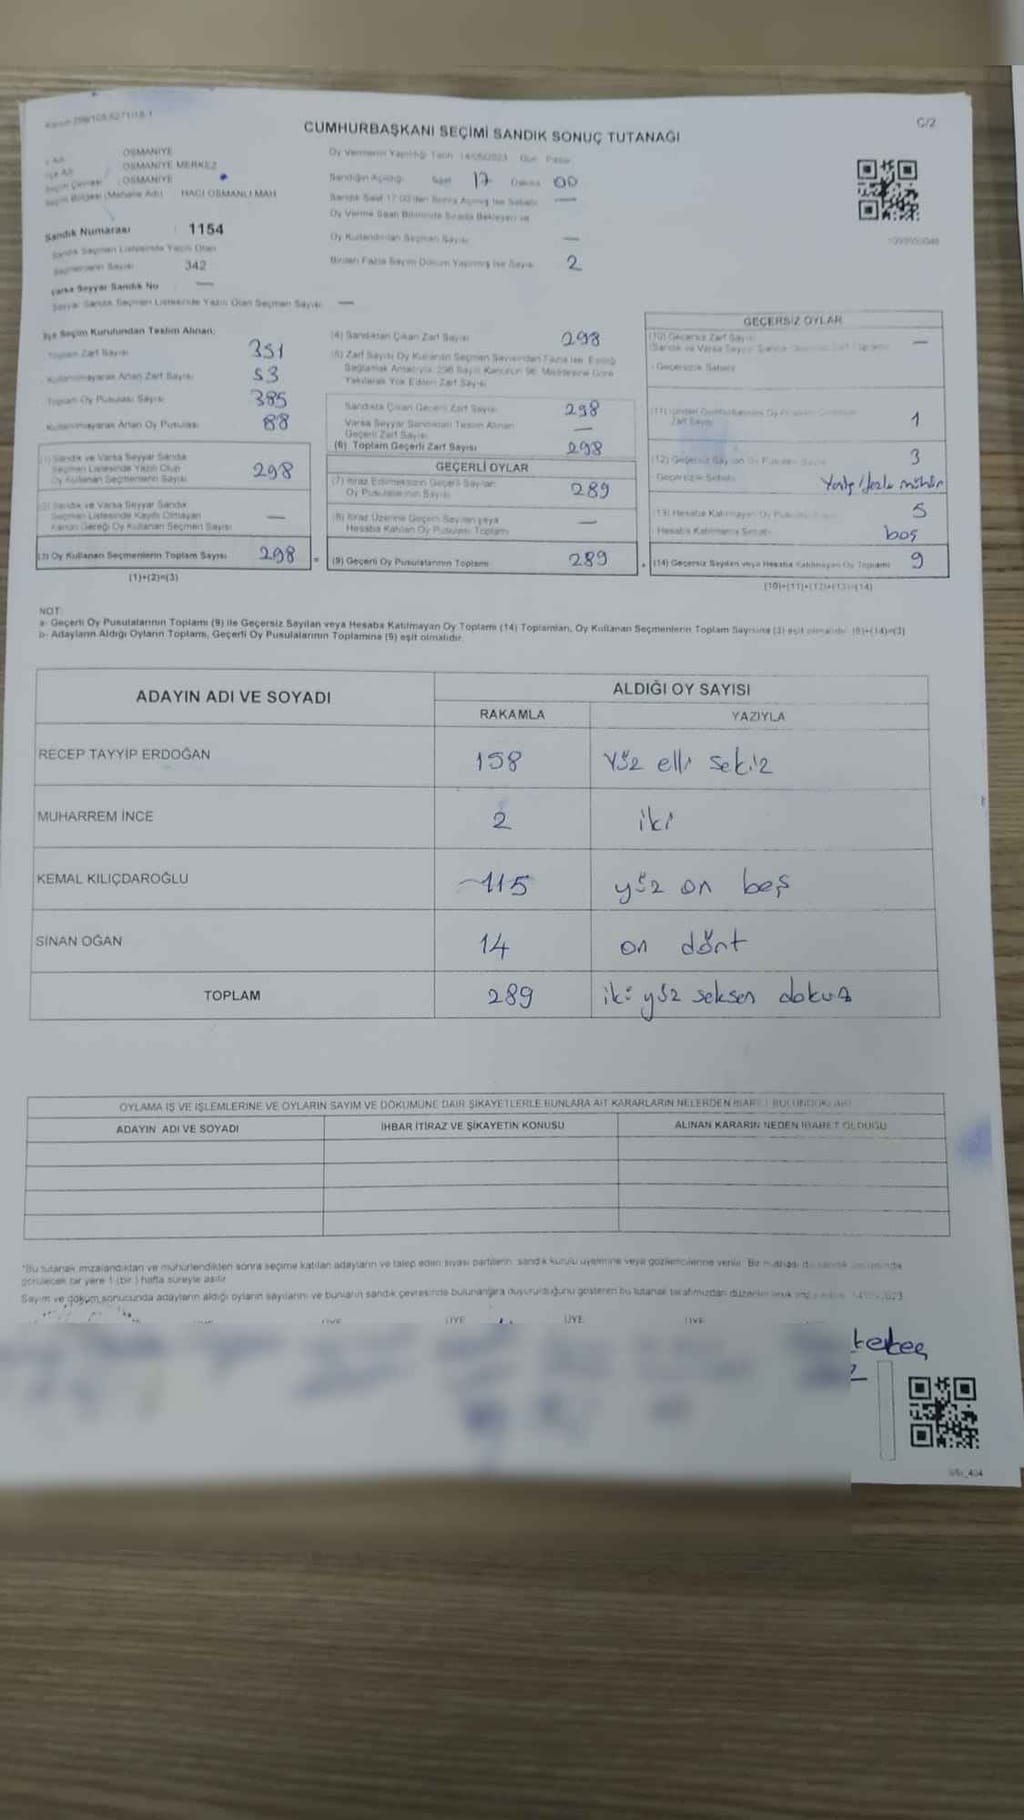 C/2
CUMHURBAŞKANI SEÇİMİ SANDIK SONUÇ TUTANAĞI
OSMANİYE
OSMANİYE MERKEZ
OSMANİYE
HACI OSMANLI MAH
Oy Vermenin Yapıldığı Tarih 14/05/2023 Gün Pazar
Sandığın Açıldığı Saat 17 Dakika 00
Sandık Numarası 1154
342
Varsa Seyyar Sandık No —
Oy Kullandırılan Seçmen Sayısı —
Birden Fazla Sayım Döküm Yapılmış İse Sayısı 2
İlçe Seçim Kurulundan Teslim Alınan:
Toplam Zarf Sayısı 351
Kullanılmayarak Artan Zarf Sayısı 53
Toplam Oy Pusulası Sayısı 385
Kullanılmayarak Artan Oy Pusulası 88
(1) Sandık ve Varsa Seyyar Sandık
Seçmen Listesinde Yazılı Olup
Oy Kullanan Seçmenlerin Sayısı 298
(2) Sandık ve Varsa Seyyar Sandık
Seçmen Listesinde Kaydı Olmayan
Kanun Gereği Oy Kullanan Seçmen Sayısı —
(3) Oy Kullanan Seçmenlerin Toplam Sayısı 298
(1)+(2)=(3)
(4) Sandıktan Çıkan Zarf Sayısı 298
(5) Zarf Sayısı Oy Kullanan Seçmen Sayısından Fazla İse, Eşitliği
Sağlamak Amacıyla, 298 Sayılı Kanunun 98. Maddesine Göre
Yakılarak Yok Edilen Zarf Sayısı
Sandıkta Çıkan Geçerli Zarf Sayısı 298
Varsa Seyyar Sandıktan Teslim Alınan
Geçerli Zarf Sayısı —
(6) Toplam Geçerli Zarf Sayısı 298
GEÇERLİ OYLAR
(7) İtiraz Edilmeksizin Geçerli Sayılan
Oy Pusulalarının Sayısı 289
(8) İtiraz Üzerine Geçerli Sayılan veya
Hesaba Katılan Oy Pusulası Toplamı —
(9) Geçerli Oy Pusulalarının Toplamı 289
GEÇERSİZ OYLAR
(10) Geçersiz Zarf Sayısı —
Geçersizlik Sebebi
1
3
mühür
(13) Hesaba Katılmayan Oy Pusulası 5
Hesaba Katılmama Sebebi boş
(14) Geçersiz Sayılan veya Hesaba Katılmayan Oy Toplamı 9
(10)+(11)+(12)+(13)=(14)
NOT:
a- Geçerli Oy Pusulalarının Toplamı (9) ile Geçersiz Sayılan veya Hesaba Katılmayan Oy Toplamı (14) Toplamları, Oy Kullanan Seçmenlerin Toplam Sayısına (3) eşit olmalıdır. (9)+(14)=(3)
b- Adayların Aldığı Oyların Toplamı, Geçerli Oy Pusulalarının Toplamına (9) eşit olmalıdır.
ADAYIN ADI VE SOYADI ALDIĞI OY SAYISI
RAKAMLA YAZIYLA
RECEP TAYYİP ERDOĞAN 158 Yüz elli sekiz
MUHARREM İNCE 2 iki
KEMAL KILIÇDAROĞLU 115 yüz on beş
SİNAN OĞAN 14 on dört
TOPLAM 289 iki yüz seksen dokuz
OYLAMA İŞ VE İŞLEMLERİNE VE OYLARIN SAYIM VE DÖKÜMÜNE DAİR ŞİKAYETLERLE BUNLARA AİT KARARLARIN NELERDEN İBARET BULUNDUĞU
ADAYIN ADI VE SOYADI İHBAR İTİRAZ VE ŞİKAYETİN KONUSU ALINAN KARARIN NEDEN İBARET OLDUĞU
*Bu tutanak imzalandıktan ve mühürlendikten sonra seçime katılan adayların ve talep eden siyasi partilerin sandık kurulu üyelerine veya gözlemcilerine verilir. Bir nüshası da
görülecek bir yere 1 (bir) hafta süreyle asılır
Sayım ve döküm sonucunda adayların aldığı oyların sayılarını ve bunların sandık çevresinde bulunanlara duyurulduğunu gösteren bu tutanak tarafımızdan
ÜYE ÜYE ÜYE ÜYE